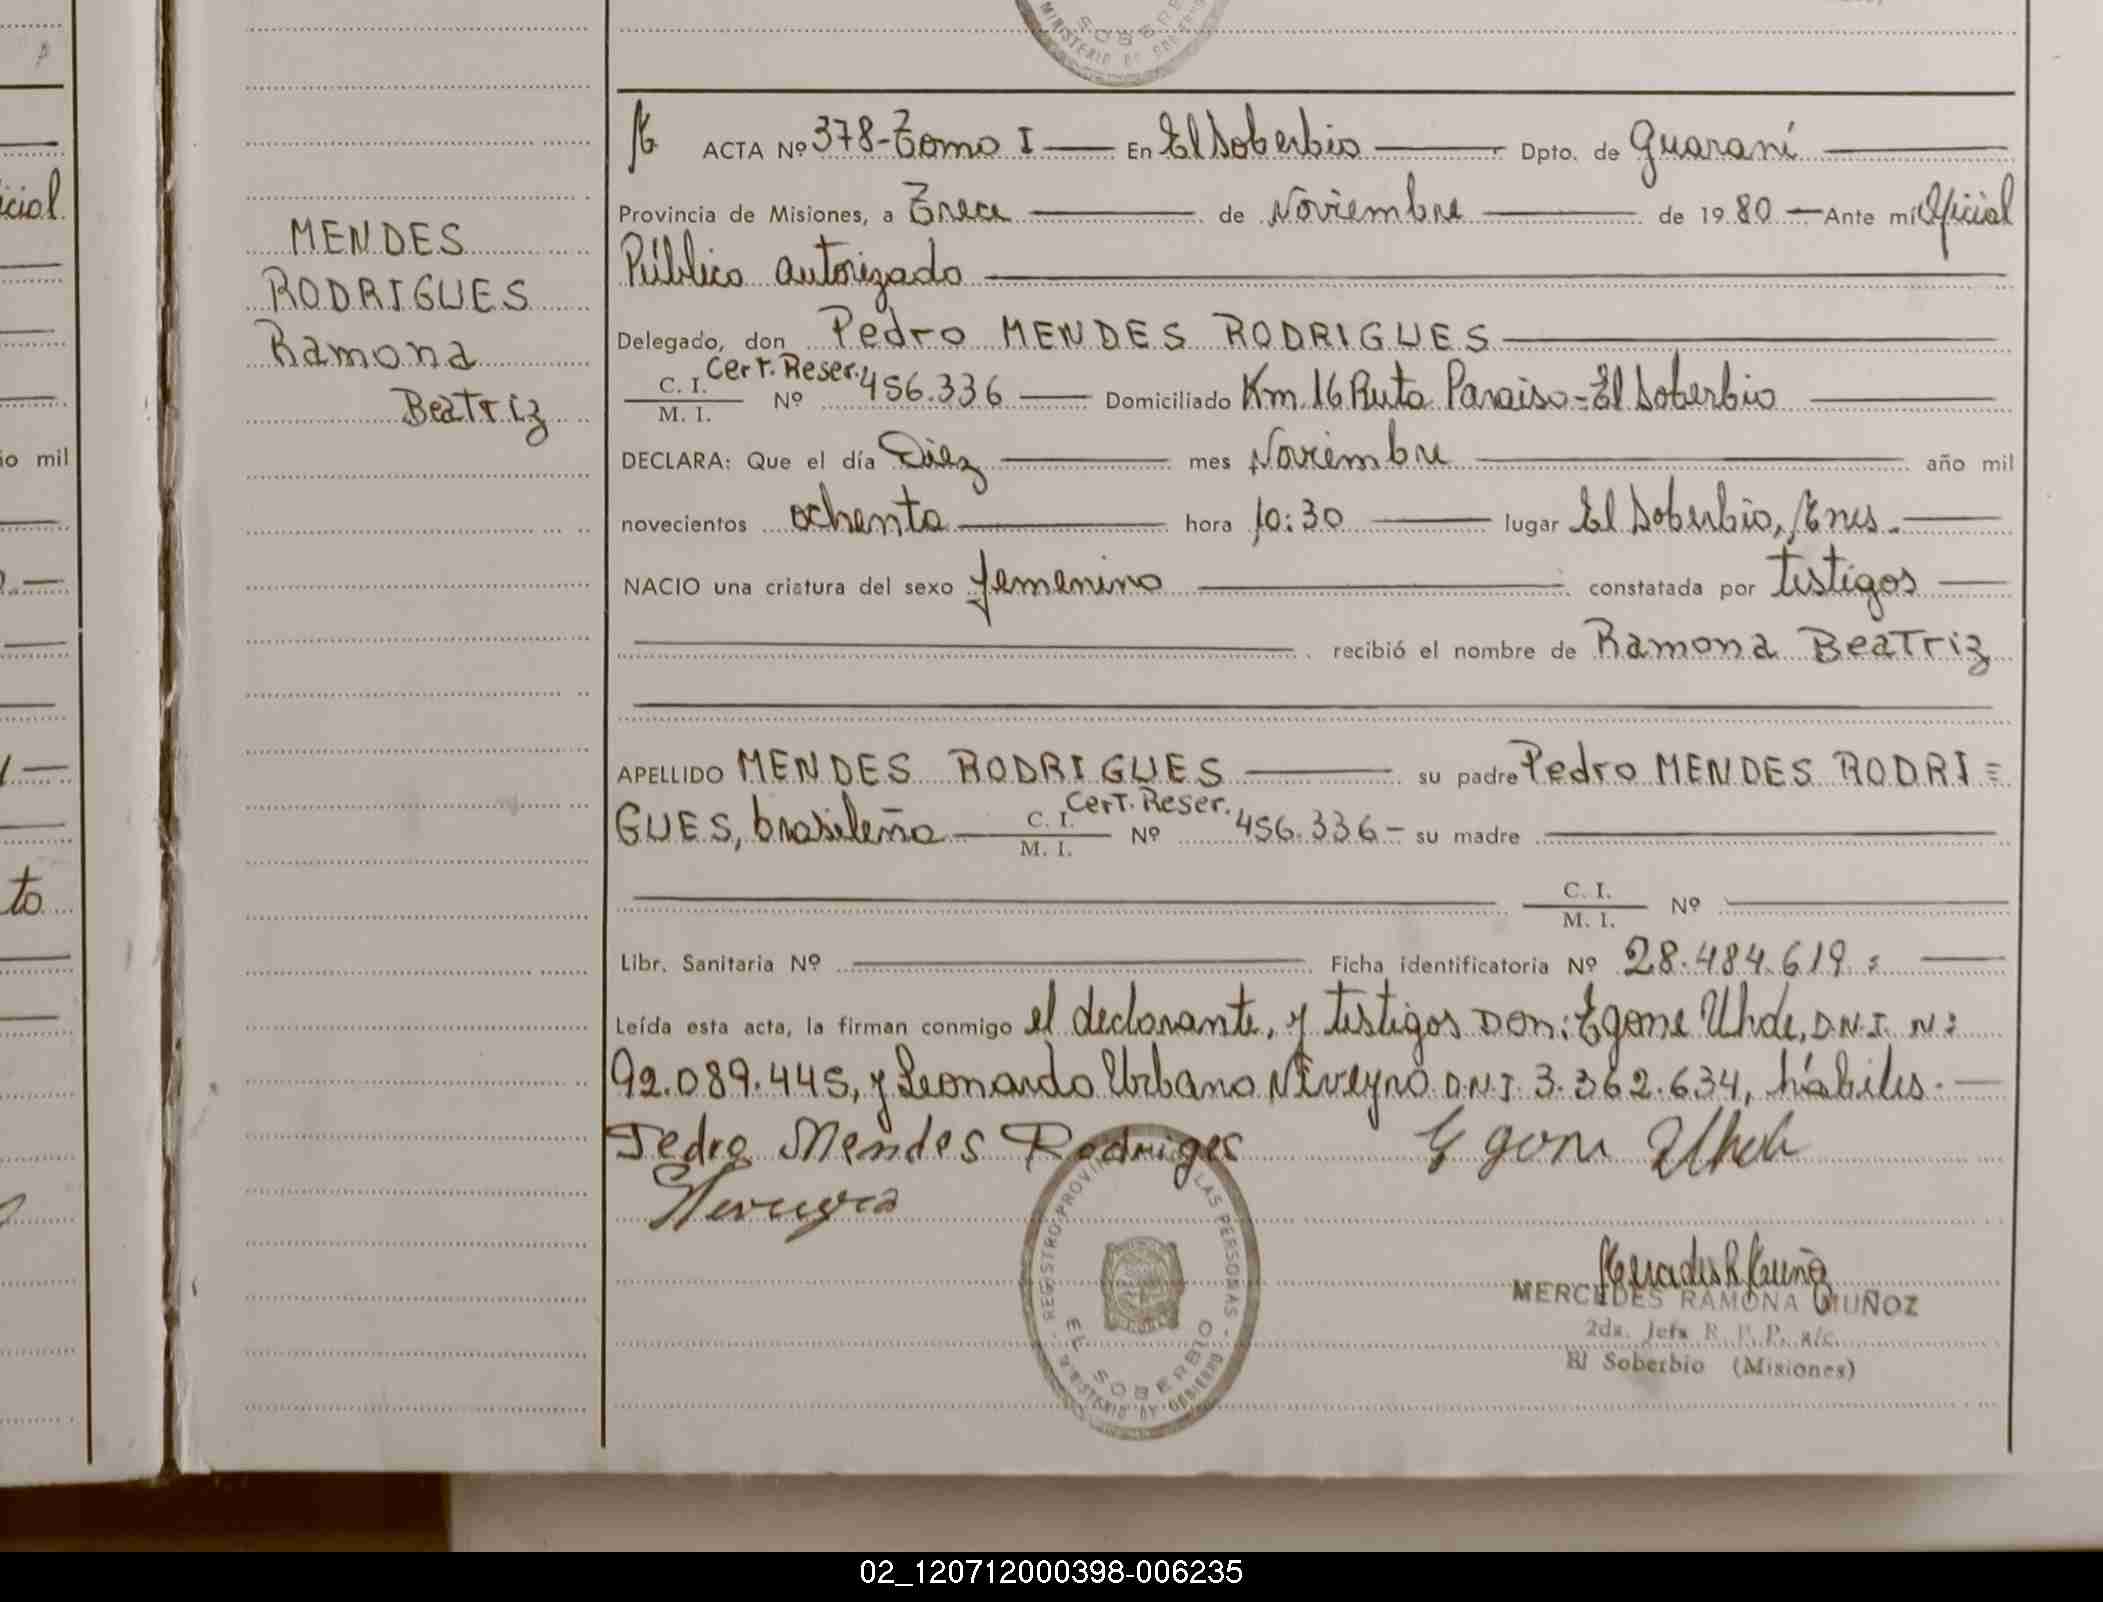 icial
io mil
to
MENDES
RODRIGUES
Ramona
Beatriz
ACTA Nº 378-Tomo I — En El Soberbio — Dpto. de Guaraní —
Provincia de Misiones, a Trece — de Noviembre — de 1980 — Ante mí Oficial
Público autorizado —
Delegado, don Pedro MENDES RODRIGUES —
C. I. / M. I. Cert. Reser. Nº 456.336 — Domiciliado Km. 16 Ruta Paraiso=El Soberbio —
DECLARA: Que el día Diez — mes Noviembre — año mil
novecientos ochenta — hora 10:30 — lugar El Soberbio, Mnes. —
NACIO una criatura del sexo femenino — constatada por testigos —
— recibió el nombre de Ramona Beatriz
APELLIDO MENDES RODRIGUES — su padre Pedro MENDES RODRI=
GUES, brasileño — C. I. / M. I. Cert. Reser. Nº 456.336- su madre —
— C. I. / M. I. Nº —
Libr. Sanitaria Nº — Ficha identificatoria Nº 28.484.619= —
Leída esta acta, la firman conmigo el declarante, y testigos Don: Egone Uhde, D.N.I. N:
92.089.445, y Leonardo Urbano Niveyro D.N.I. 3.362.634, hábiles. —
Pedro Mendes Rodriges Egone Uhde
REGISTRO PROVINCIAL LAS PERSONAS
EL SOBERBIO
MINISTERIO DE GOBIERNO
MERCEDES RAMONA MUÑOZ
2da. Jefa R. P. P. a/c.
El Soberbio (Misiones)
02_120712000398-006235